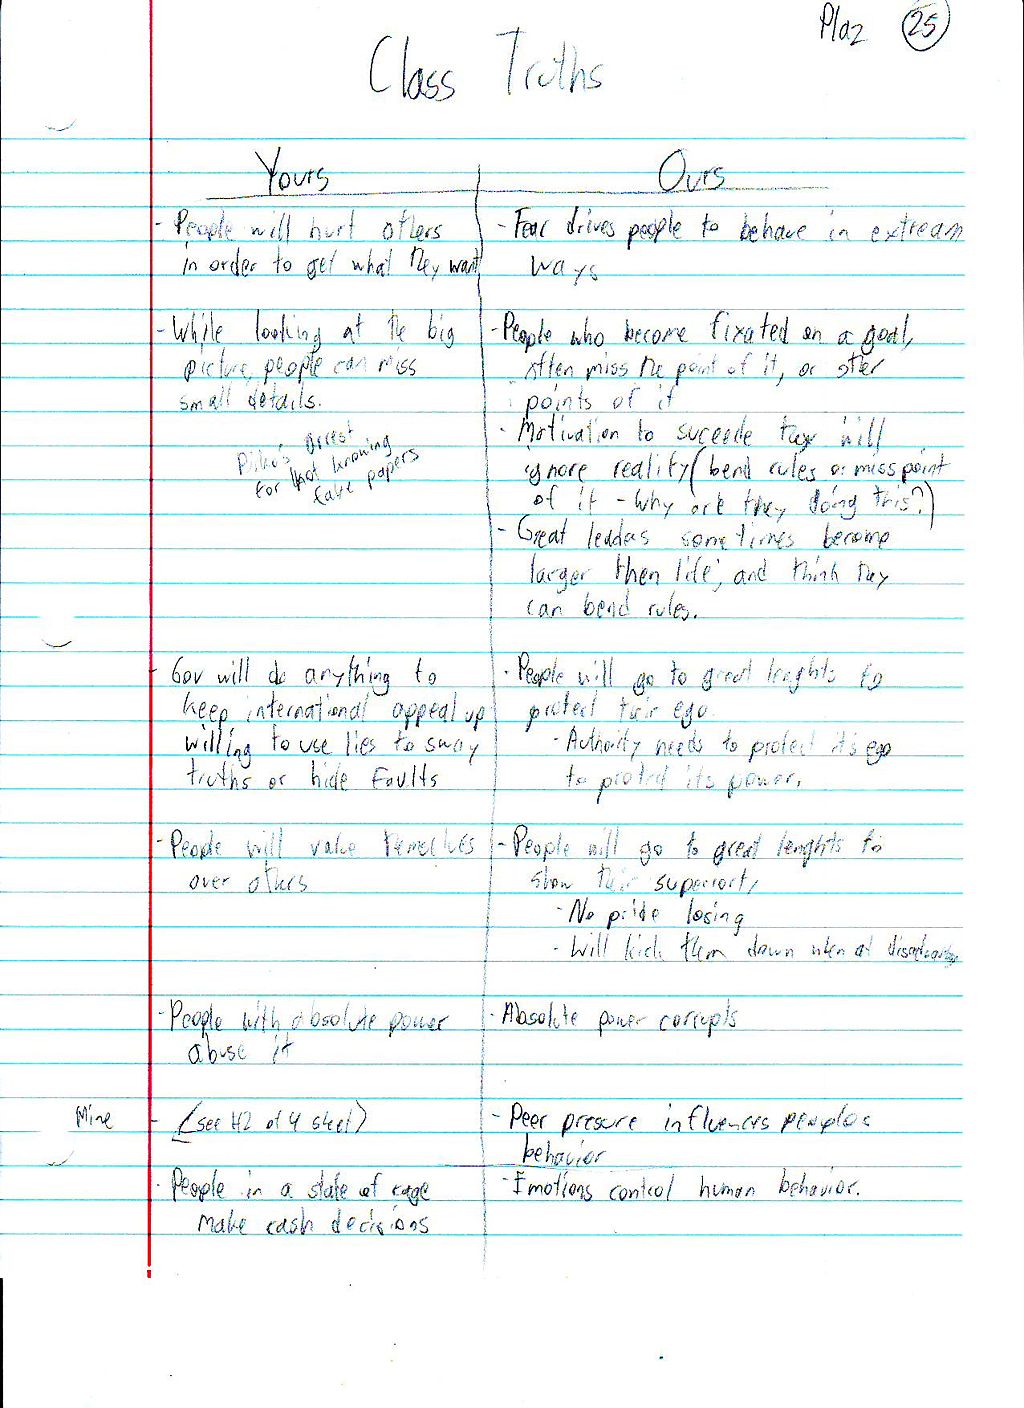 Plaz 25
Class Truths
Yours
- People will hurt others
in order to get what they want
- While looking at the big
picture, people can miss
small details.
arrest
For not knowing
fake papers
- Gov will do anything to
keep international appeal up
willing to use lies to sway
truths or hide Faults
- People will value themselves
over others
- People with absolute power
abuse it
Mine - (see #2 of 4 sheet)
- People in a state of rage
make rash decisions
Ours
- Fear drives people to behave in extream
ways
- People who become fixated on a goal,
often miss the point of it, or other
points of it
- Motivation to suceede they will
ignore reality (bend rules or miss point
of it - Why are they doing this?)
- Great leaders sometimes become
larger then life, and think they
can bend rules.
- People will go to great lenghts to
protect their ego.
- Authority needs to protect it's ego
to protect its power.
- People will go to great lenghts to
show their superiorty
- No pride losing
- Will kick them down when at disadvantage
- Absolute power corrupts
- Peer presure influences peoples
behavior
- Emotions control human behavior.